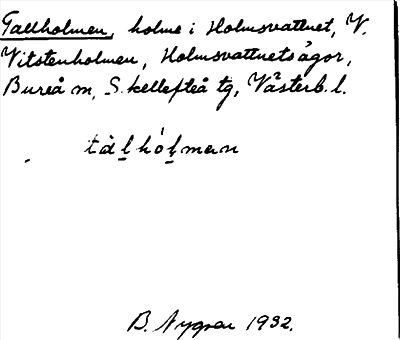 Tallholmen, holme i Holmsvattnet, V.
Vitstenholmen, Holmsvattnets ägor,
Bureå m, S. kellefteå tg, Västerb. l.
tàl̲hól̲mɑn
B. Nygren 1932.